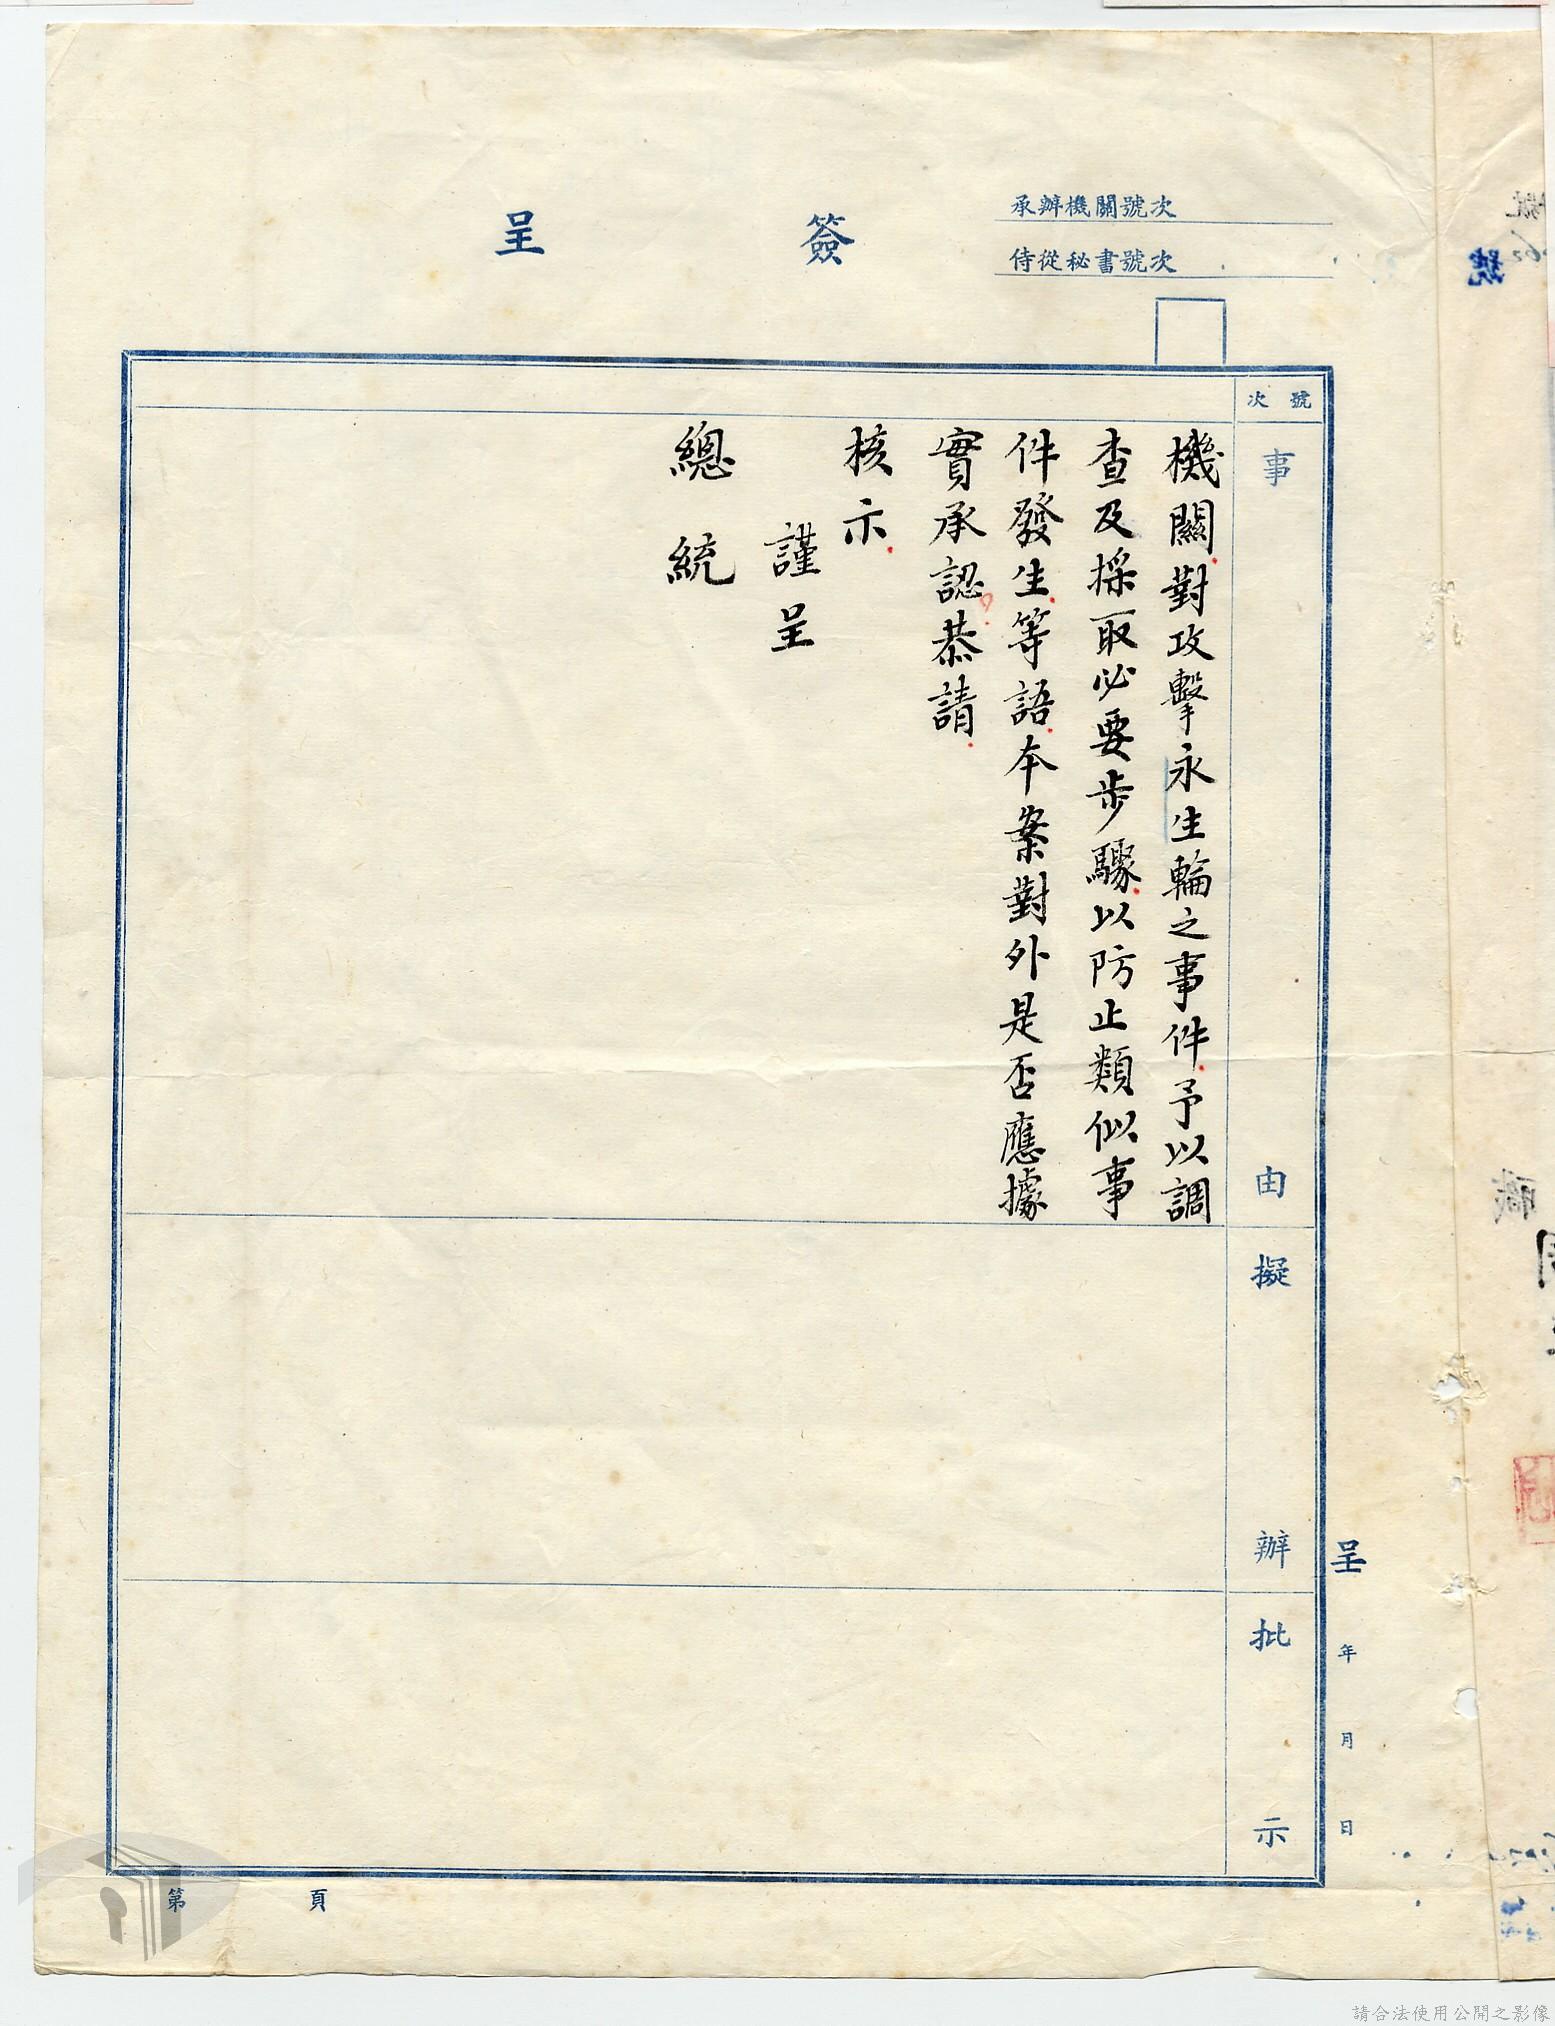 簽呈
承辦機關號次
侍從秘書號次
號次
事由
擬辦
批示
機關對攻擊永生輪之事件予以調
查及採取必要步驟以防止類似事
件發生等語本案對外是否應據
實承認恭請
核示
謹呈
總統
呈 年 月 日
第 頁
號
職
請合法使用公開之影像